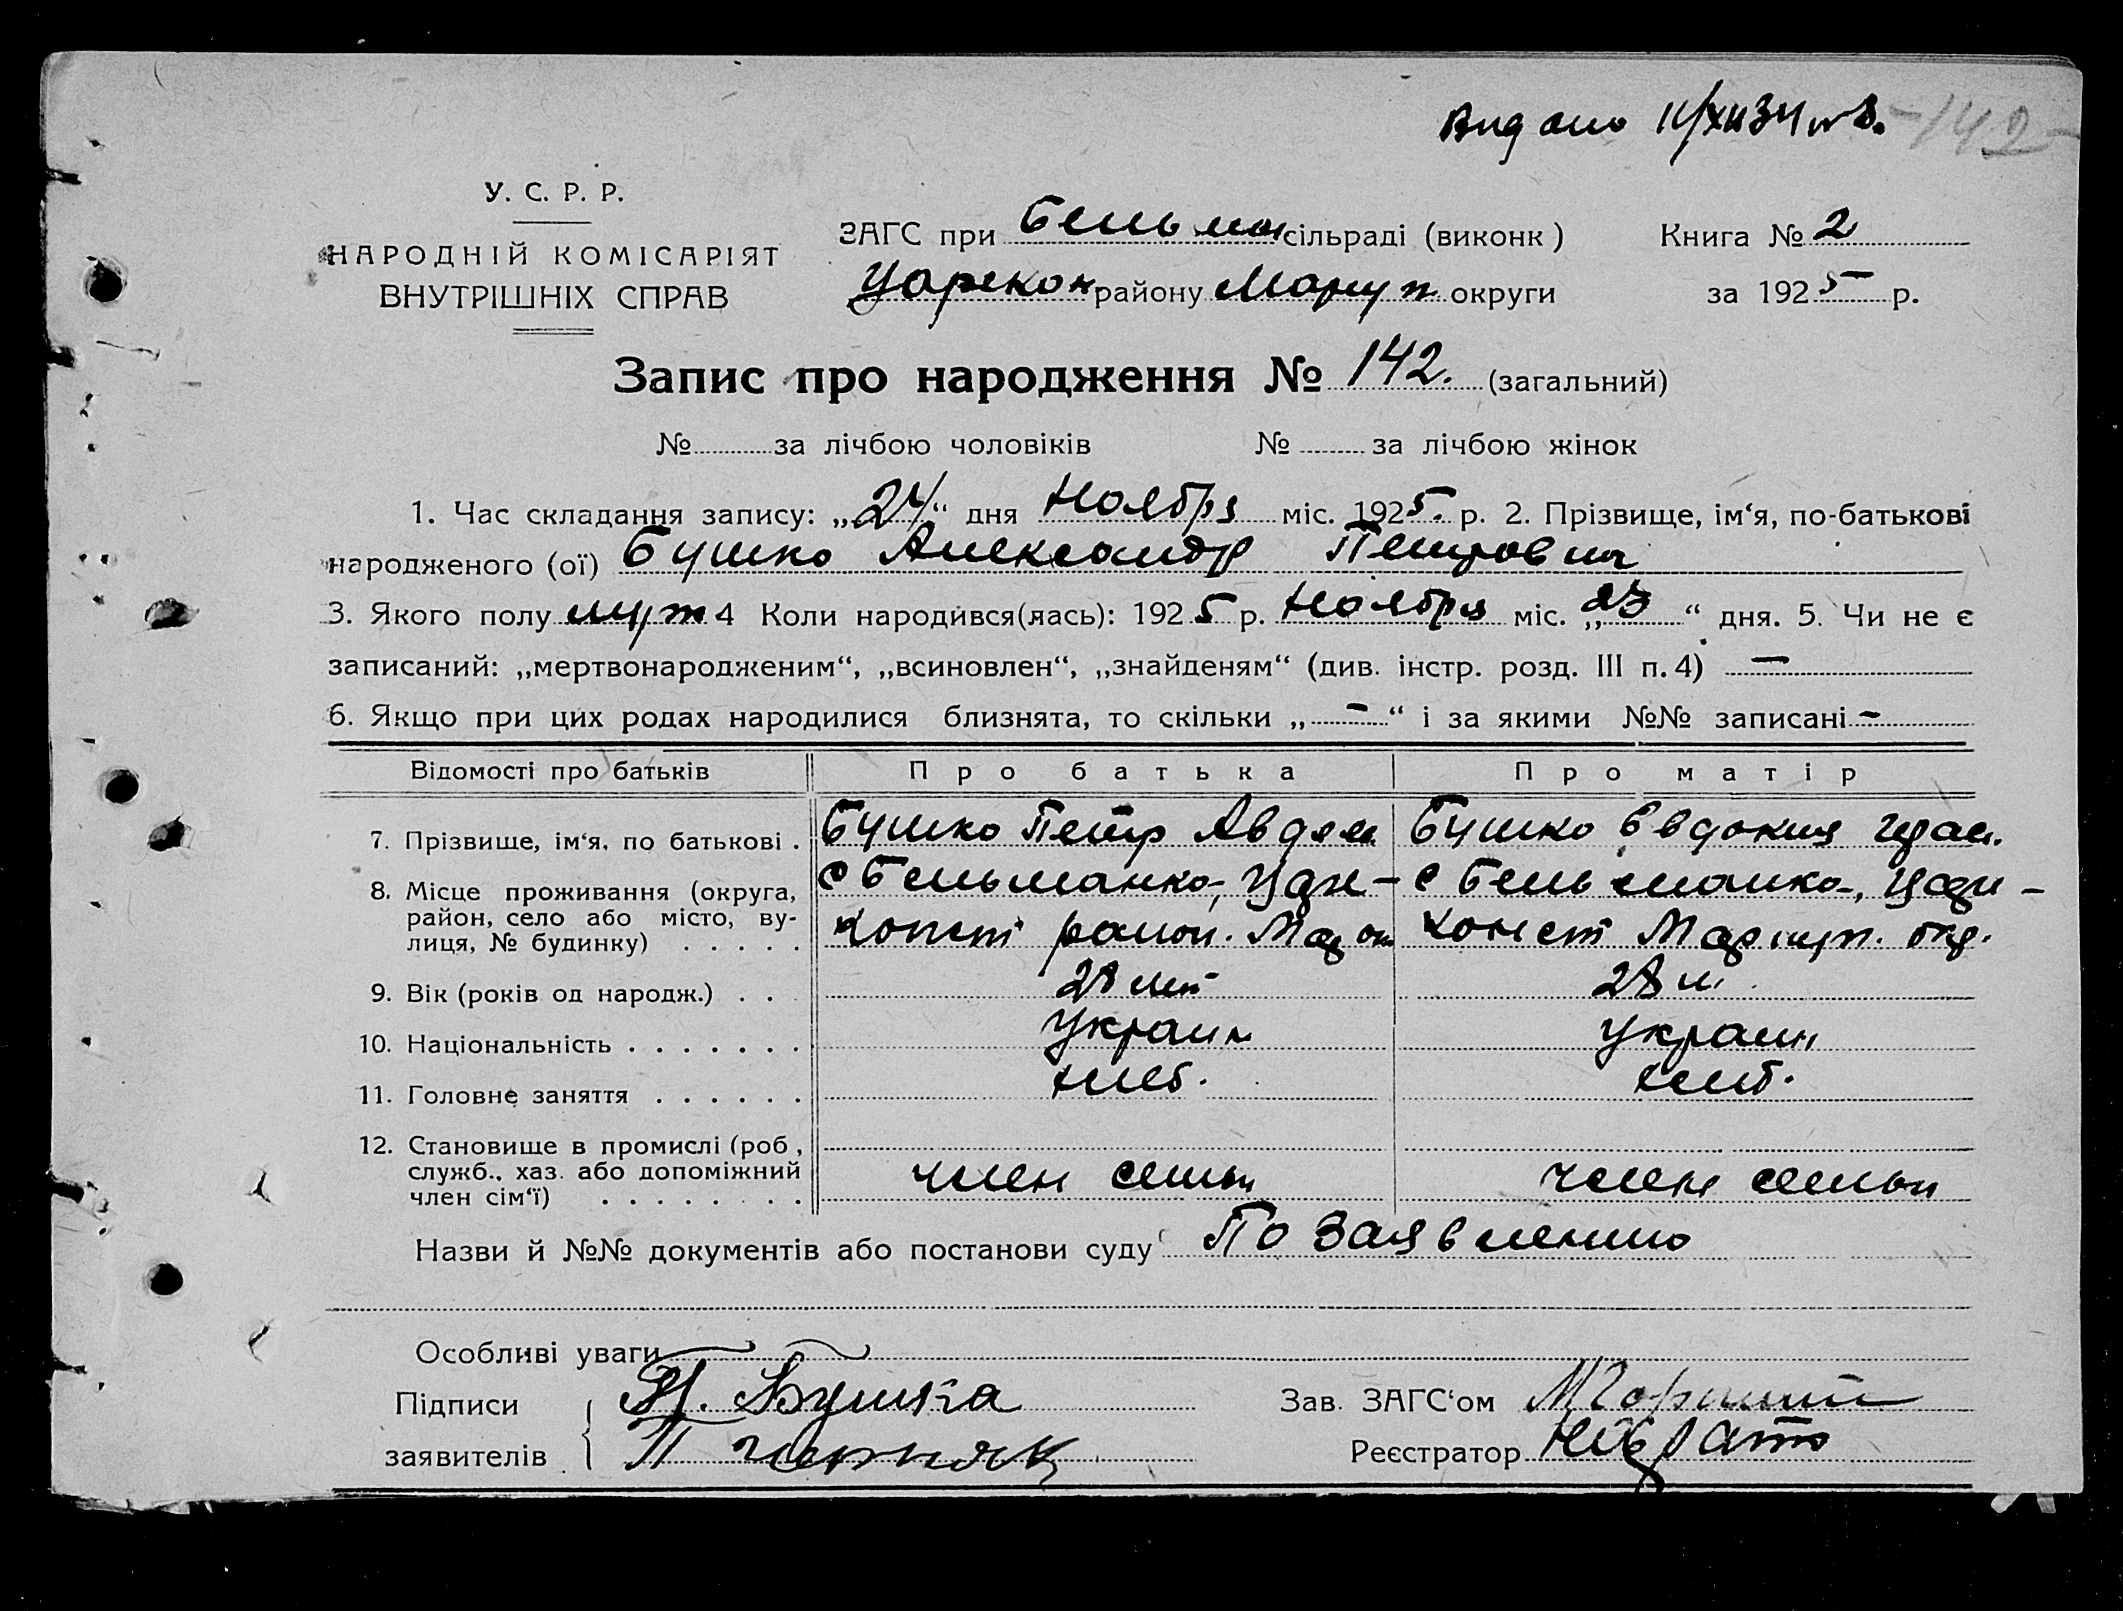 Видано 11/XII 34 № 8. -142-
У. С. Р. Р.
НАРОДНІЙ КОМІСАРІЯТ
ВНУТРІШНІХ СПРАВ
ЗАГС при Бельман сільраді (виконк)
Царекон району Мариуп округи
Книга № 2
за 1925 р.
Запис про народження № 142. (загальний)
№ за лічбою чоловіків № за лічбою жінок
1. Час складання запису: „24“ дня Ноября міс. 1925. р. 2. Прізвище, ім‘я, по-батькові
народженого (ої) Бушко Александр Петрович
3. Якого полу муж 4 Коли народився(лась): 1925 р. Ноября міс. „23“ дня. 5. Чи не є
записаний: „мертвонародженим“, „всиновлен“, „знайденям“ (див. інстр. розд. III п. 4) —
6. Якщо при цих родах народилися близнята, то скільки „ - “ і за якими №№ записані -
Відомості про батьків Про батька Про матір
7. Прізвище, ім‘я, по батькові . Бушко Петр Авдеев. Бушко Евдокия
8. Місце проживання (округа, с Бельманка, Царе- с Бельманка, Царе-
район, село або місто, ву-
лиця, № будинку) . . . . . конст район. Мар ок конст Мариуп. окр.
9. Вік (років од народж.) . . . 28 лет 28 л.
10. Національність . . . . . . . Украин Украин
11. Головне заняття . . . . . . хлеб. хлеб.
12. Становище в промислі (роб,
служб., хаз. або допоміжний член семьи член семьи
член сім‘ї) . . . . . . . .
Назви й №№ документів або постанови суду По заявлению
Особливі уваги
Підписи П. Бушка Зав. ЗАГС‘ом
заявителів П Черняк Реєстратор